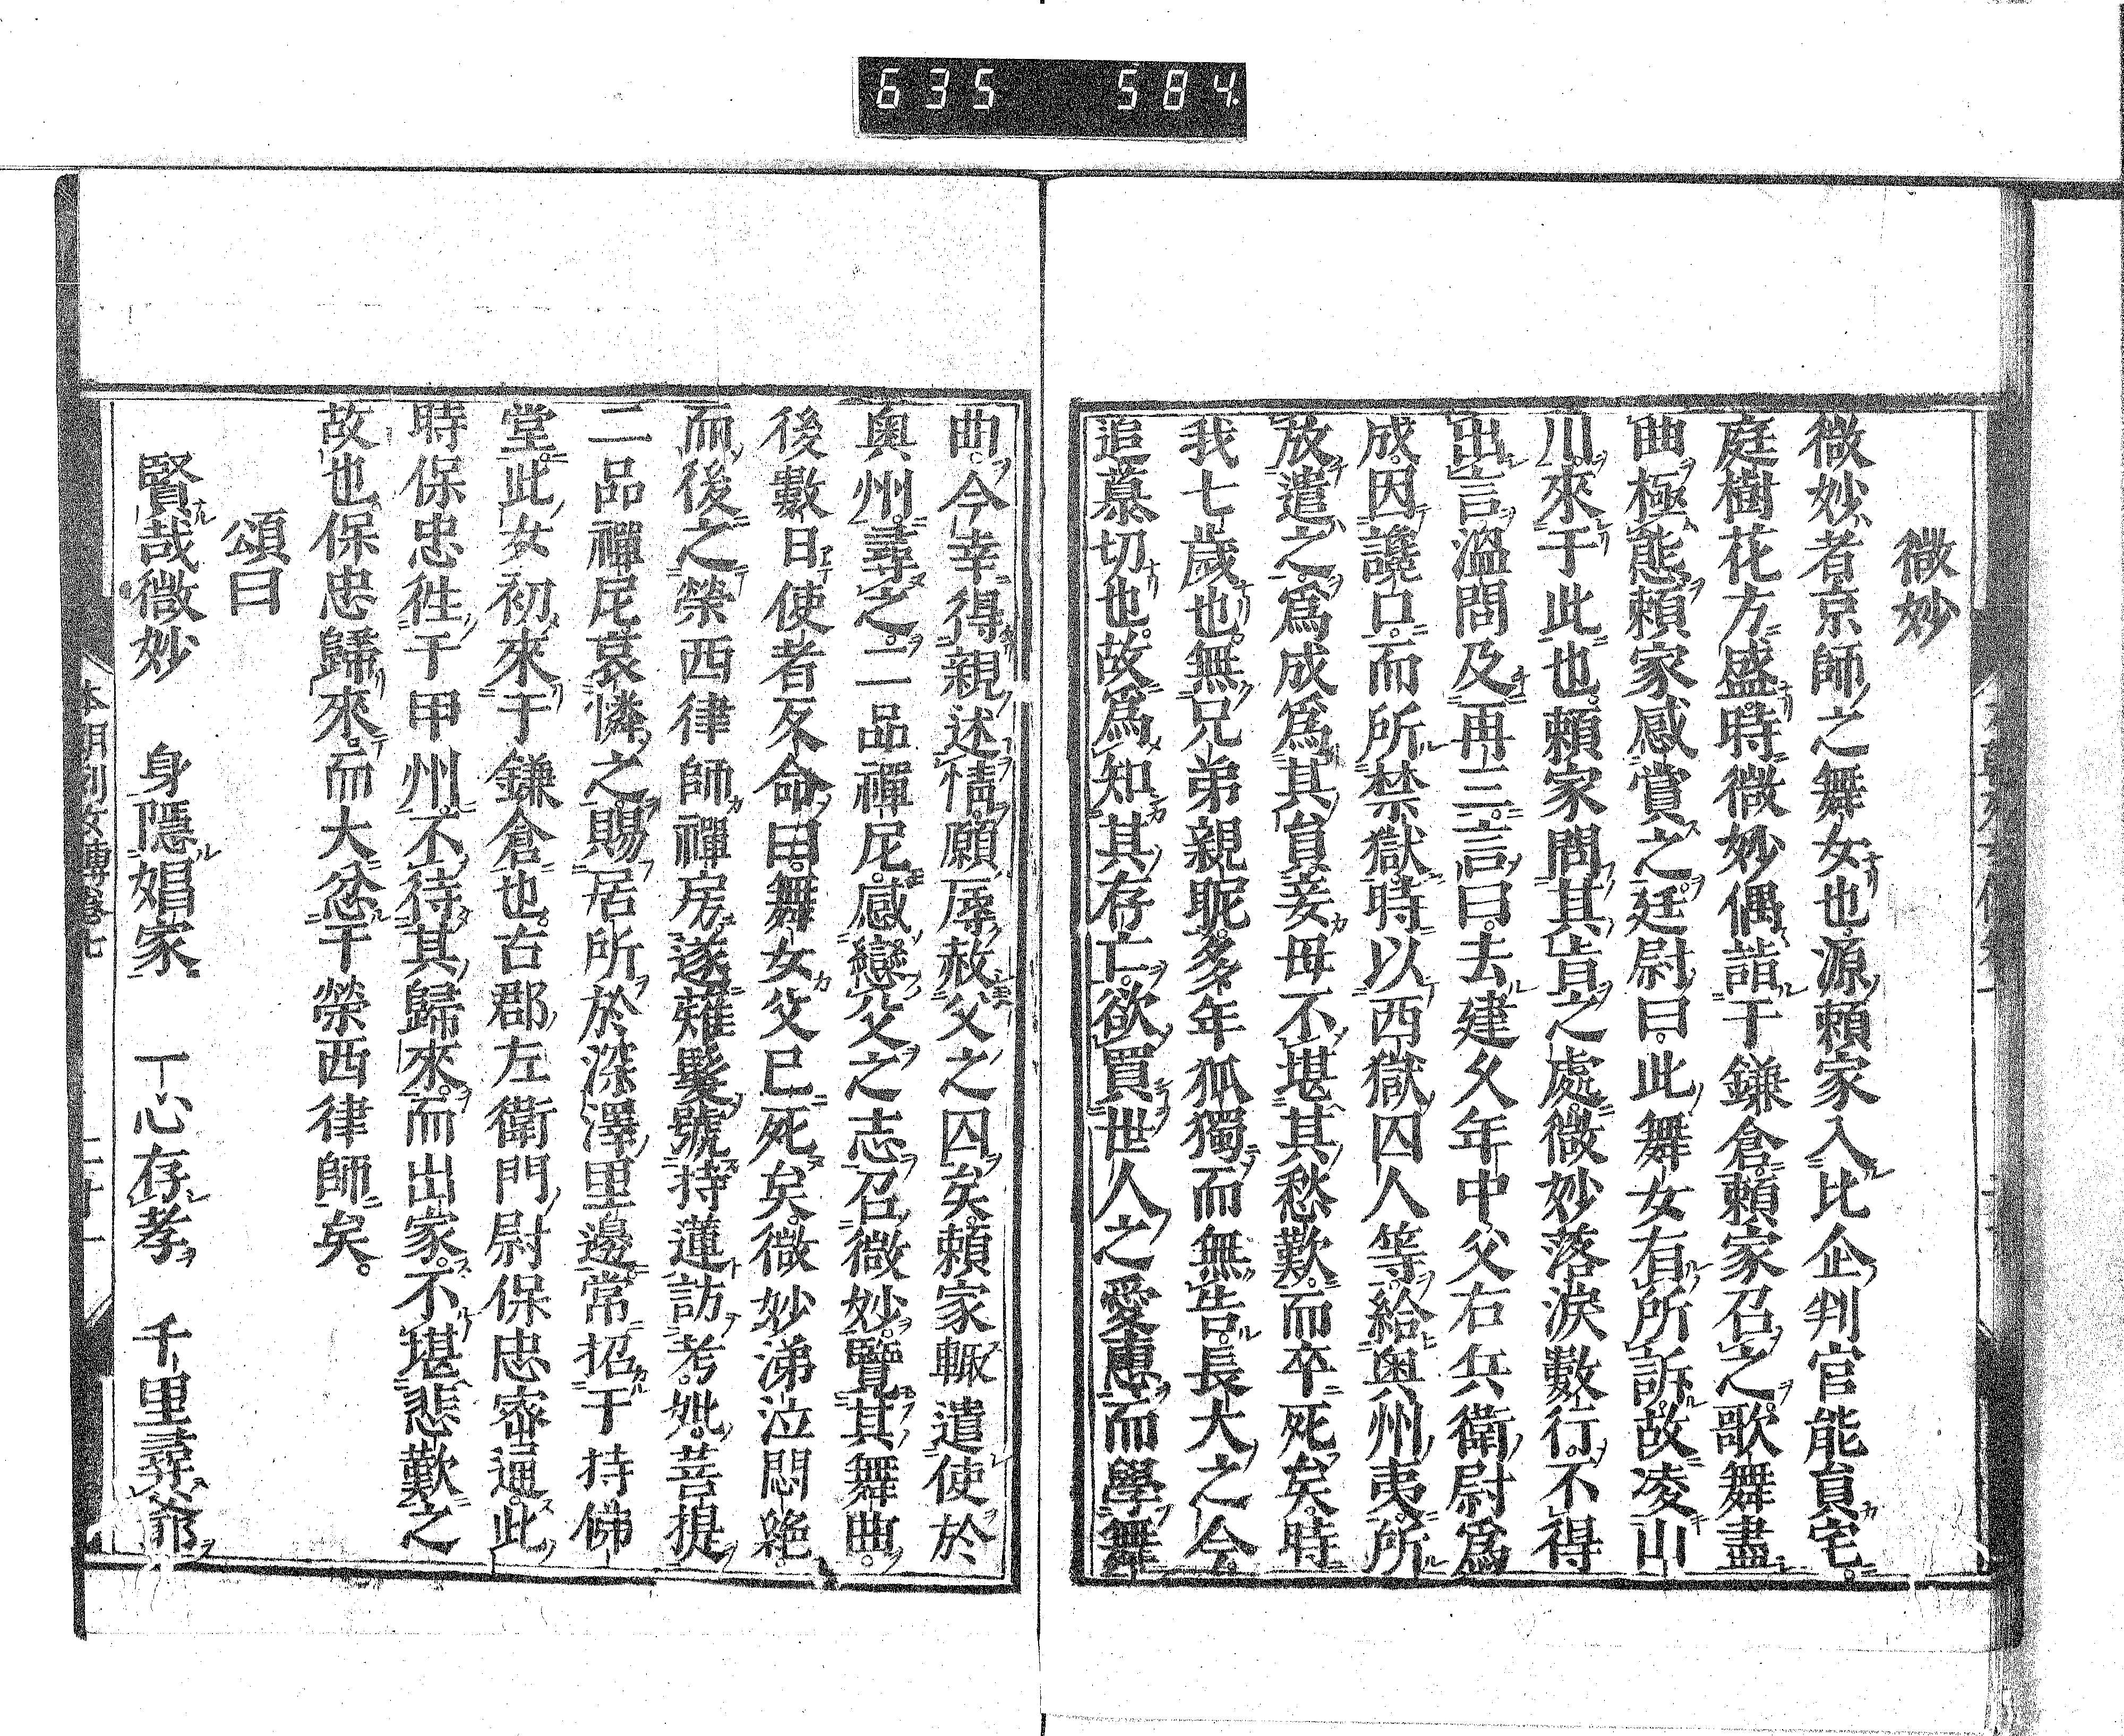 635 584
微妙
微妙者京師之舞女也源賴家入比企判官能員宅
庭樹花方盛時微妙偶詣于鎌倉賴家召之歌舞盡
曲極態賴家感賞之廷尉曰此舞女有所訴故凌山
川來于此也賴家問其旨之處微妙落淚數行不得
出言溫問及再三言曰去建久年中父右兵衛尉爲
成因讒口而所禁獄時以西獄囚人等給奧州夷所
放遣之爲成爲其員妾母不堪其愁歎而卒死矣時
我七歲也無兄弟親昵多年狐獨而無告長大之今
追慕切也故爲知其存亡欲買世人之愛惠而學舞
曲今幸得親述情願辱赦父之囚矣賴家輙遣使於
奧州尋之二品禪尼感戀父之志召微妙覽其舞曲
後數日使者反命曰舞女父已死矣微妙涕泣悶絕
而後之榮西律師禪房遂薙髮號持蓮訪考妣菩提
二品禪尼哀憐之賜居所於深澤里邊常招于持佛
堂此女初來于鎌倉也古郡左衛門尉保忠密通此
時保忠徃于甲州不待其歸來而出家不堪悲歎之
故也保忠歸來而大忿于榮西律師矣
頌曰
賢哉微妙 身隱娼家 一心存孝 千里尋爺
本朝列女傳卷七 二十一